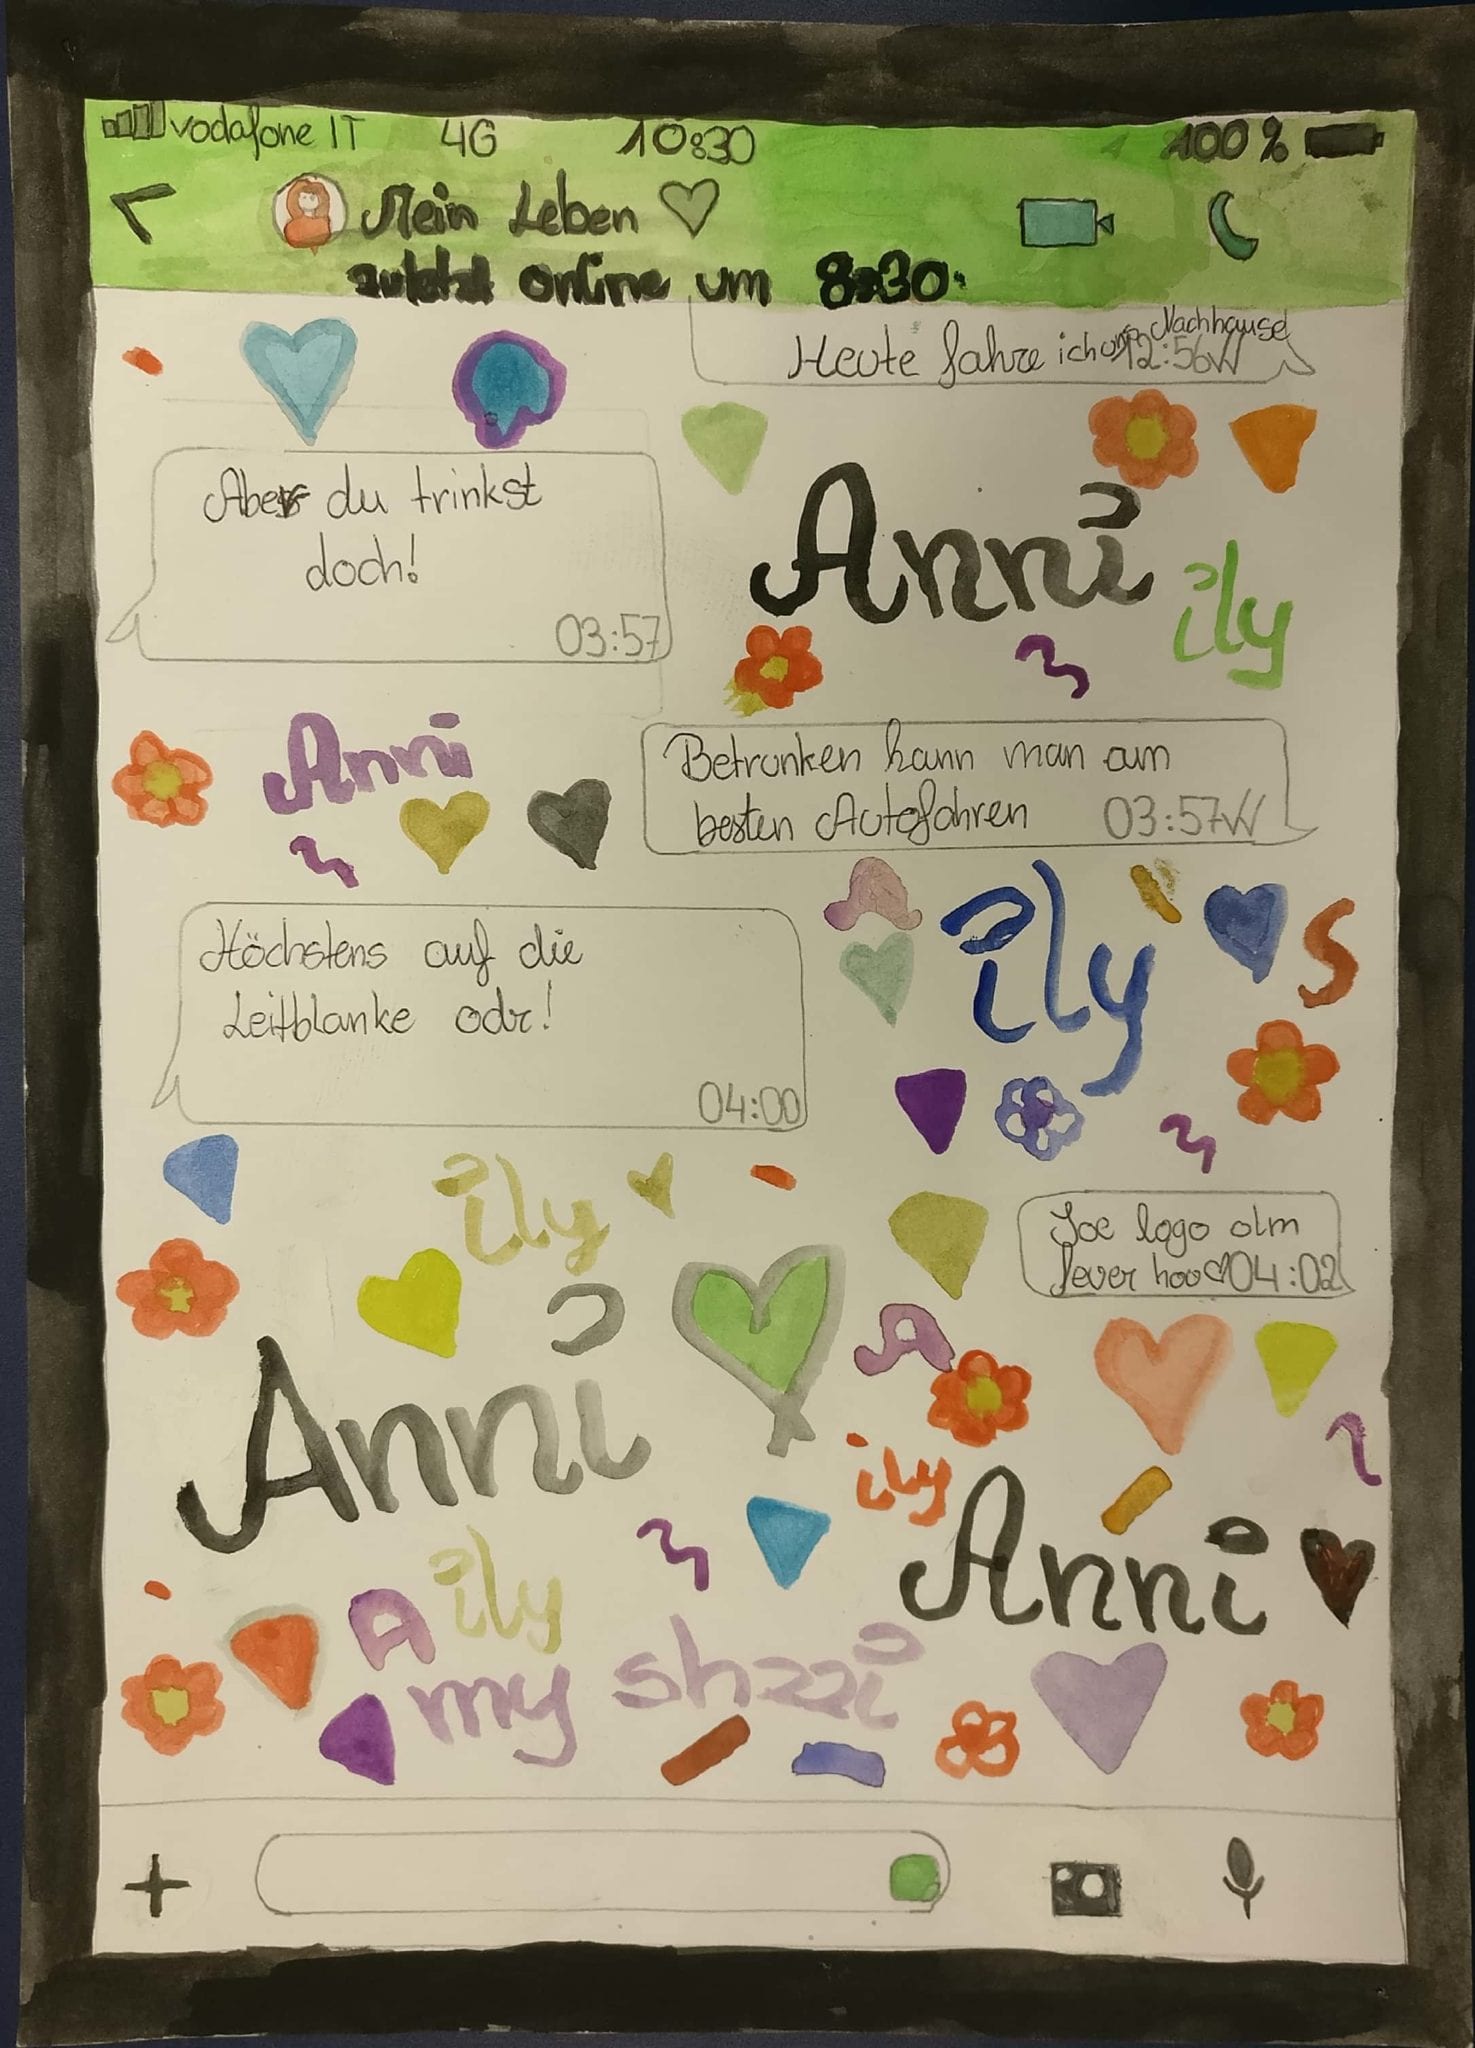 vodafone IT 4G 10:30 100 %
Mein Leben
zuletzt online um 8:30
Heute fahre ich uns Nachhause!
12:56
Aber du trinkst
doch!
03:57
Anni
ily
Anni
Betrunken kann man am
besten Autofahren 03:57
Höchstens auf die
Leitblanke odr!
04:00
A
ily
S
ily
Joe logo olm
fever hoo 04:02
A
Anni
ily
Anni
ily
A
my shzzi